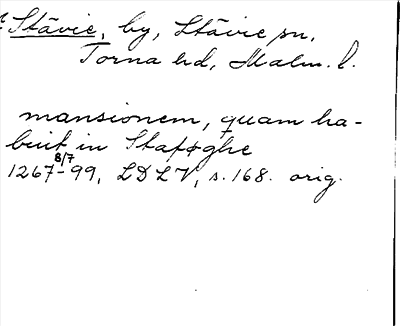 Stävie, by, Stävie sn,
Torna hd, Malm. l.
mansionem, quam ha-
buit in Stapøghe
8/7
1267-99, LDLV, s. 168. orig.